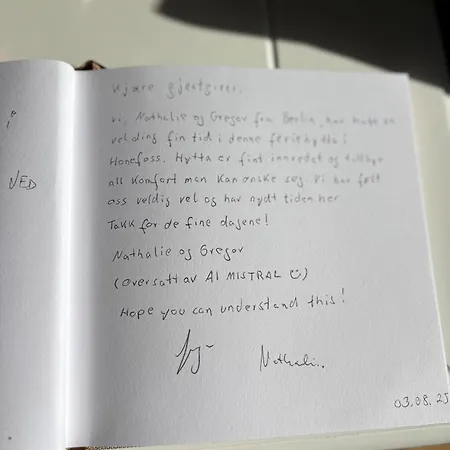 Kjære gjestgiver,
Vi, Nathalie og Gregor fra Berlin, har hatt en
veldig fin tid i denne feriehytta i
Hønefoss. Hytta er fint innredet og tilbyr
all komfort man kan ønske seg. Vi har følt
oss veldig vel og har nydt tiden her
Takk for de fine dagene!
Nathalie og Gregor
(Oversatt av AI MISTRAL ☺)
Hope you can understand this!
Nathalie
03.08.25
VED